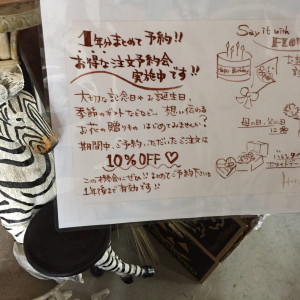 1年分まとめて予約!!
お得な注文予約会
実施中です!!
大切な記念日やお誕生日、
季節のギフトなどなど… 想い伝わる
お花の贈りもの はじめてみませんか?
期間中、ご予約いただいたご注文は
10%OFF♡
この機会にぜひ!! まとめてご予約下さい
1年後まで有効です!!
Say it with
FLOW
Happy Birthday
母の日、父の日